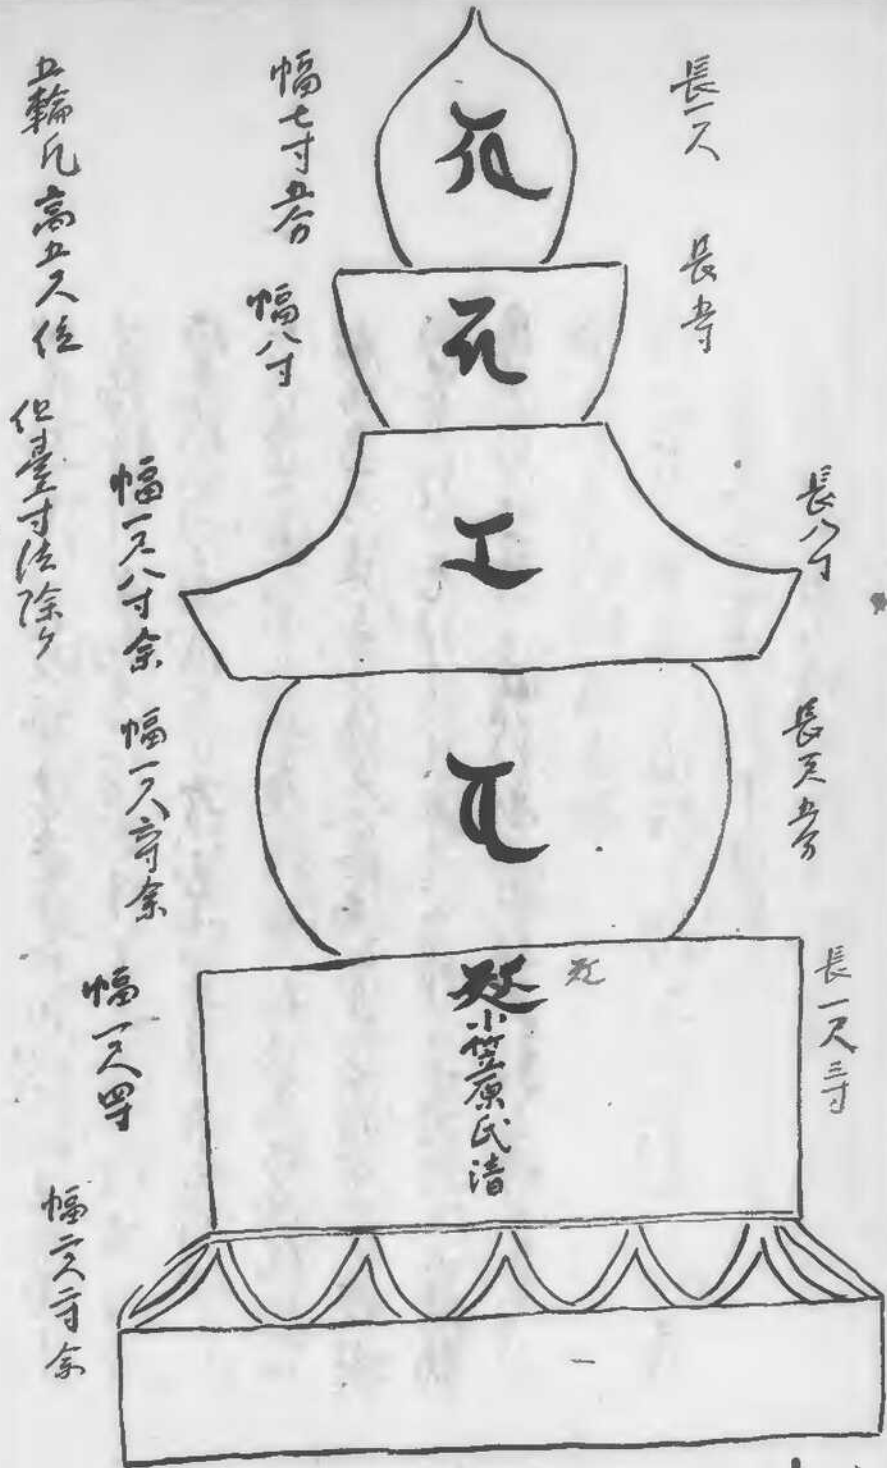 長一尺
長五寸
長八寸
長一尺五分
長一尺三寸
小笠原氏清
幅七寸五分
幅八寸
幅一尺八寸余
幅一尺
幅一尺四寸
幅二尺二寸余
五輪凡高五尺位
但臺寸法除ク